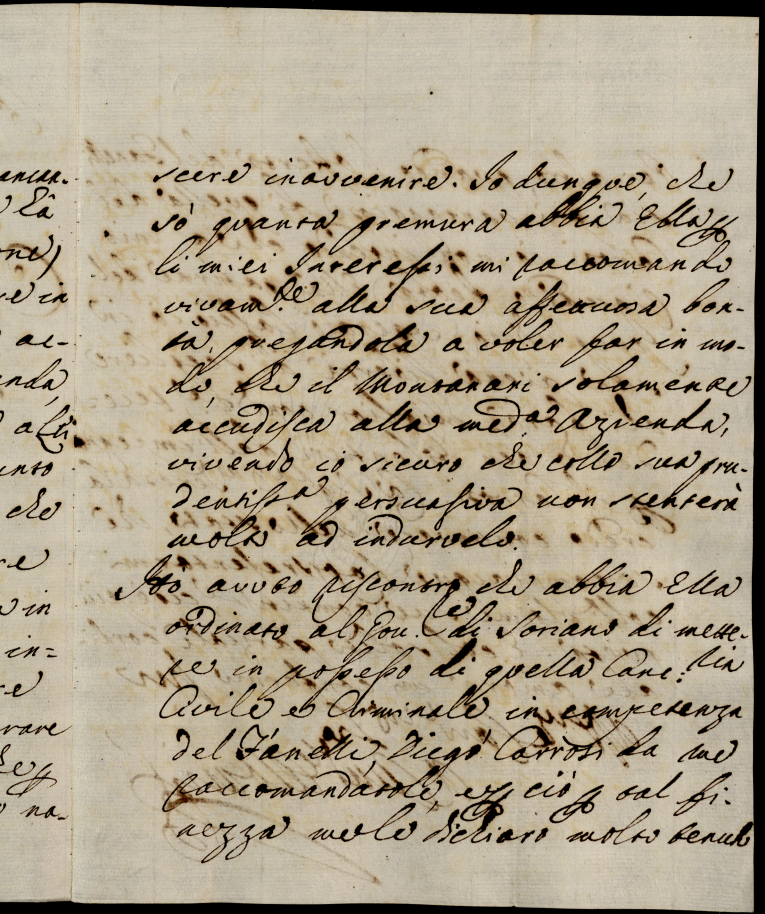 ancan-
Là
one)
re in
ac-
enda
a Lui
unto
che
re
in
in=
re
rare
na-
scere inavvenire. Io dunque, che
sò quanta premura abbia Ella p
li miei Interessi mi raccomando
vivam.te alla sua affettuosa bon-
tà, pregandola a voler far in mo-
do, che il Montanari solamente
accudisca alla med.a Azienda,
vivendo io sicuro che collo sua pru-
dentiss.a persuasiva non stenterà
molto ad indurvelo.
Ho avuto riscontro che abbia Ella
ordinato al Gov.re di Soriano di mette-
re in possesso di quella Canc:ria
Civile e Criminale in competenza
del Fanelli, Diego Carrosi da me
raccomandatole, e p ciò p tal fi-
nezza mele dichiaro molto tenuto